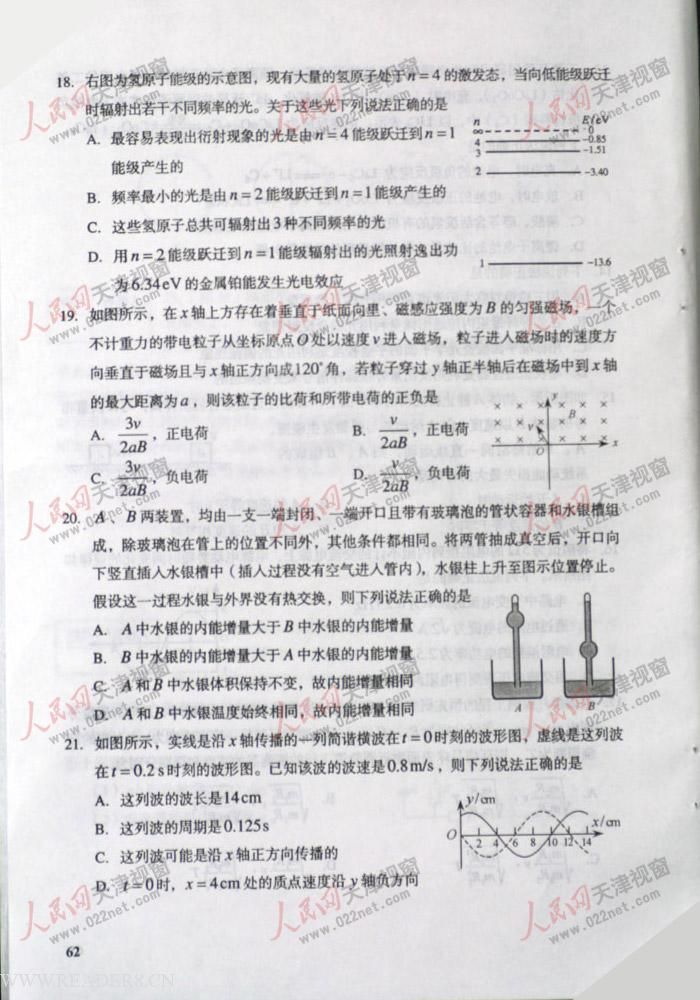 18. 右图为氢原子能级的示意图，现有大量的氢原子处于n=4的激发态，当向低能级跃迁
时辐射出若干不同频率的光。关于这些光下列说法正确的是
A. 最容易表现出衍射现象的光是由n=4能级跃迁到n=1
能级产生的
B. 频率最小的光是由n=2能级跃迁到n=1能级产生的
C. 这些氢原子总共可辐射出3种不同频率的光
D. 用n=2能级跃迁到n=1能级辐射出的光照射逸出功
为6.34eV的金属铂能发生光电效应
n E/eV
∞ 0
4 -0.85
3 -1.51
2 -3.40
1 -13.6
19. 如图所示，在x轴上方存在着垂直于纸面向里、磁感应强度为B的匀强磁场，一个
不计重力的带电粒子从坐标原点O处以速度v进入磁场，粒子进入磁场时的速度方
向垂直于磁场且与x轴正方向成120°角，若粒子穿过y轴正半轴后在磁场中到x轴
的最大距离为a，则该粒子的比荷和所带电荷的正负是
A. 3v/2aB，正电荷 B. v/2aB，正电荷
C. 3v/2aB，负电荷 D. v/2aB，负电荷
y
B
v
O
x
20. A、B两装置，均由一支一端封闭、一端开口且带有玻璃泡的管状容器和水银槽组
成，除玻璃泡在管上的位置不同外，其他条件都相同。将两管抽成真空后，开口向
下竖直插入水银槽中（插入过程没有空气进入管内），水银柱上升至图示位置停止。
假设这一过程水银与外界没有热交换，则下列说法正确的是
A. A中水银的内能增量大于B中水银的内能增量
B. B中水银的内能增量大于A中水银的内能增量
C. A和B中水银体积保持不变，故内能增量相同
D. A和B中水银温度始终相同，故内能增量相同
A B
21. 如图所示，实线是沿x轴传播的一列简谐横波在t=0时刻的波形图，虚线是这列波
在t=0.2s时刻的波形图。已知该波的波速是0.8m/s，则下列说法正确的是
A. 这列波的波长是14cm
B. 这列波的周期是0.125s
C. 这列波可能是沿x轴正方向传播的
D. t=0时，x=4cm处的质点速度沿y轴负方向
y/cm
x/cm
O 2 4 6 8 10 12 14
62
人民网天津视窗
www.022net.com
WWW.READERS.CN